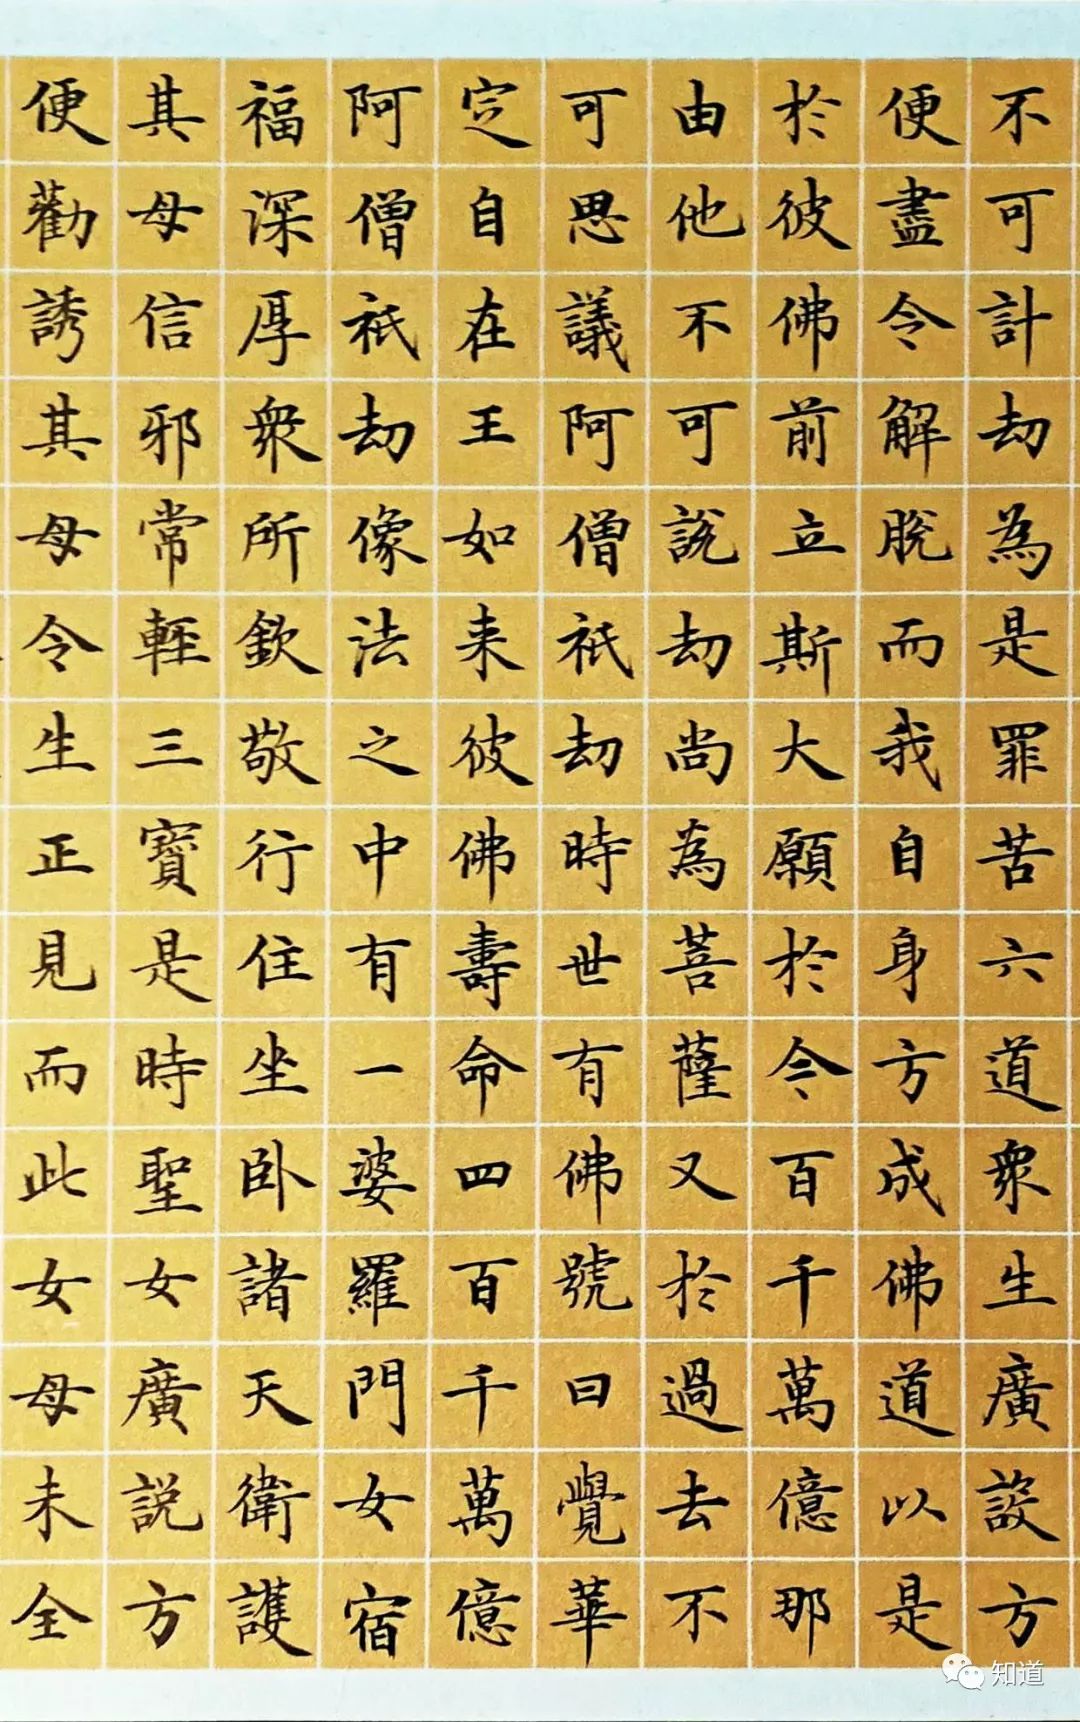 不可計劫為是罪苦六道衆生廣設方
便盡令解脫而我自身方成佛道以是
於彼佛前立斯大願於今百千萬億那
由他不可說劫尚為菩薩又於過去不
可思議阿僧祇劫時世有佛號曰覺華
定自在王如来彼佛壽命四百千萬億
阿僧祇劫像法之中有一婆羅門女宿
福深厚衆所欽敬行住坐卧諸天衛護
其母信邪常輕三寶是時聖女廣説方
便勸誘其母令生正見而此女母未全
知道